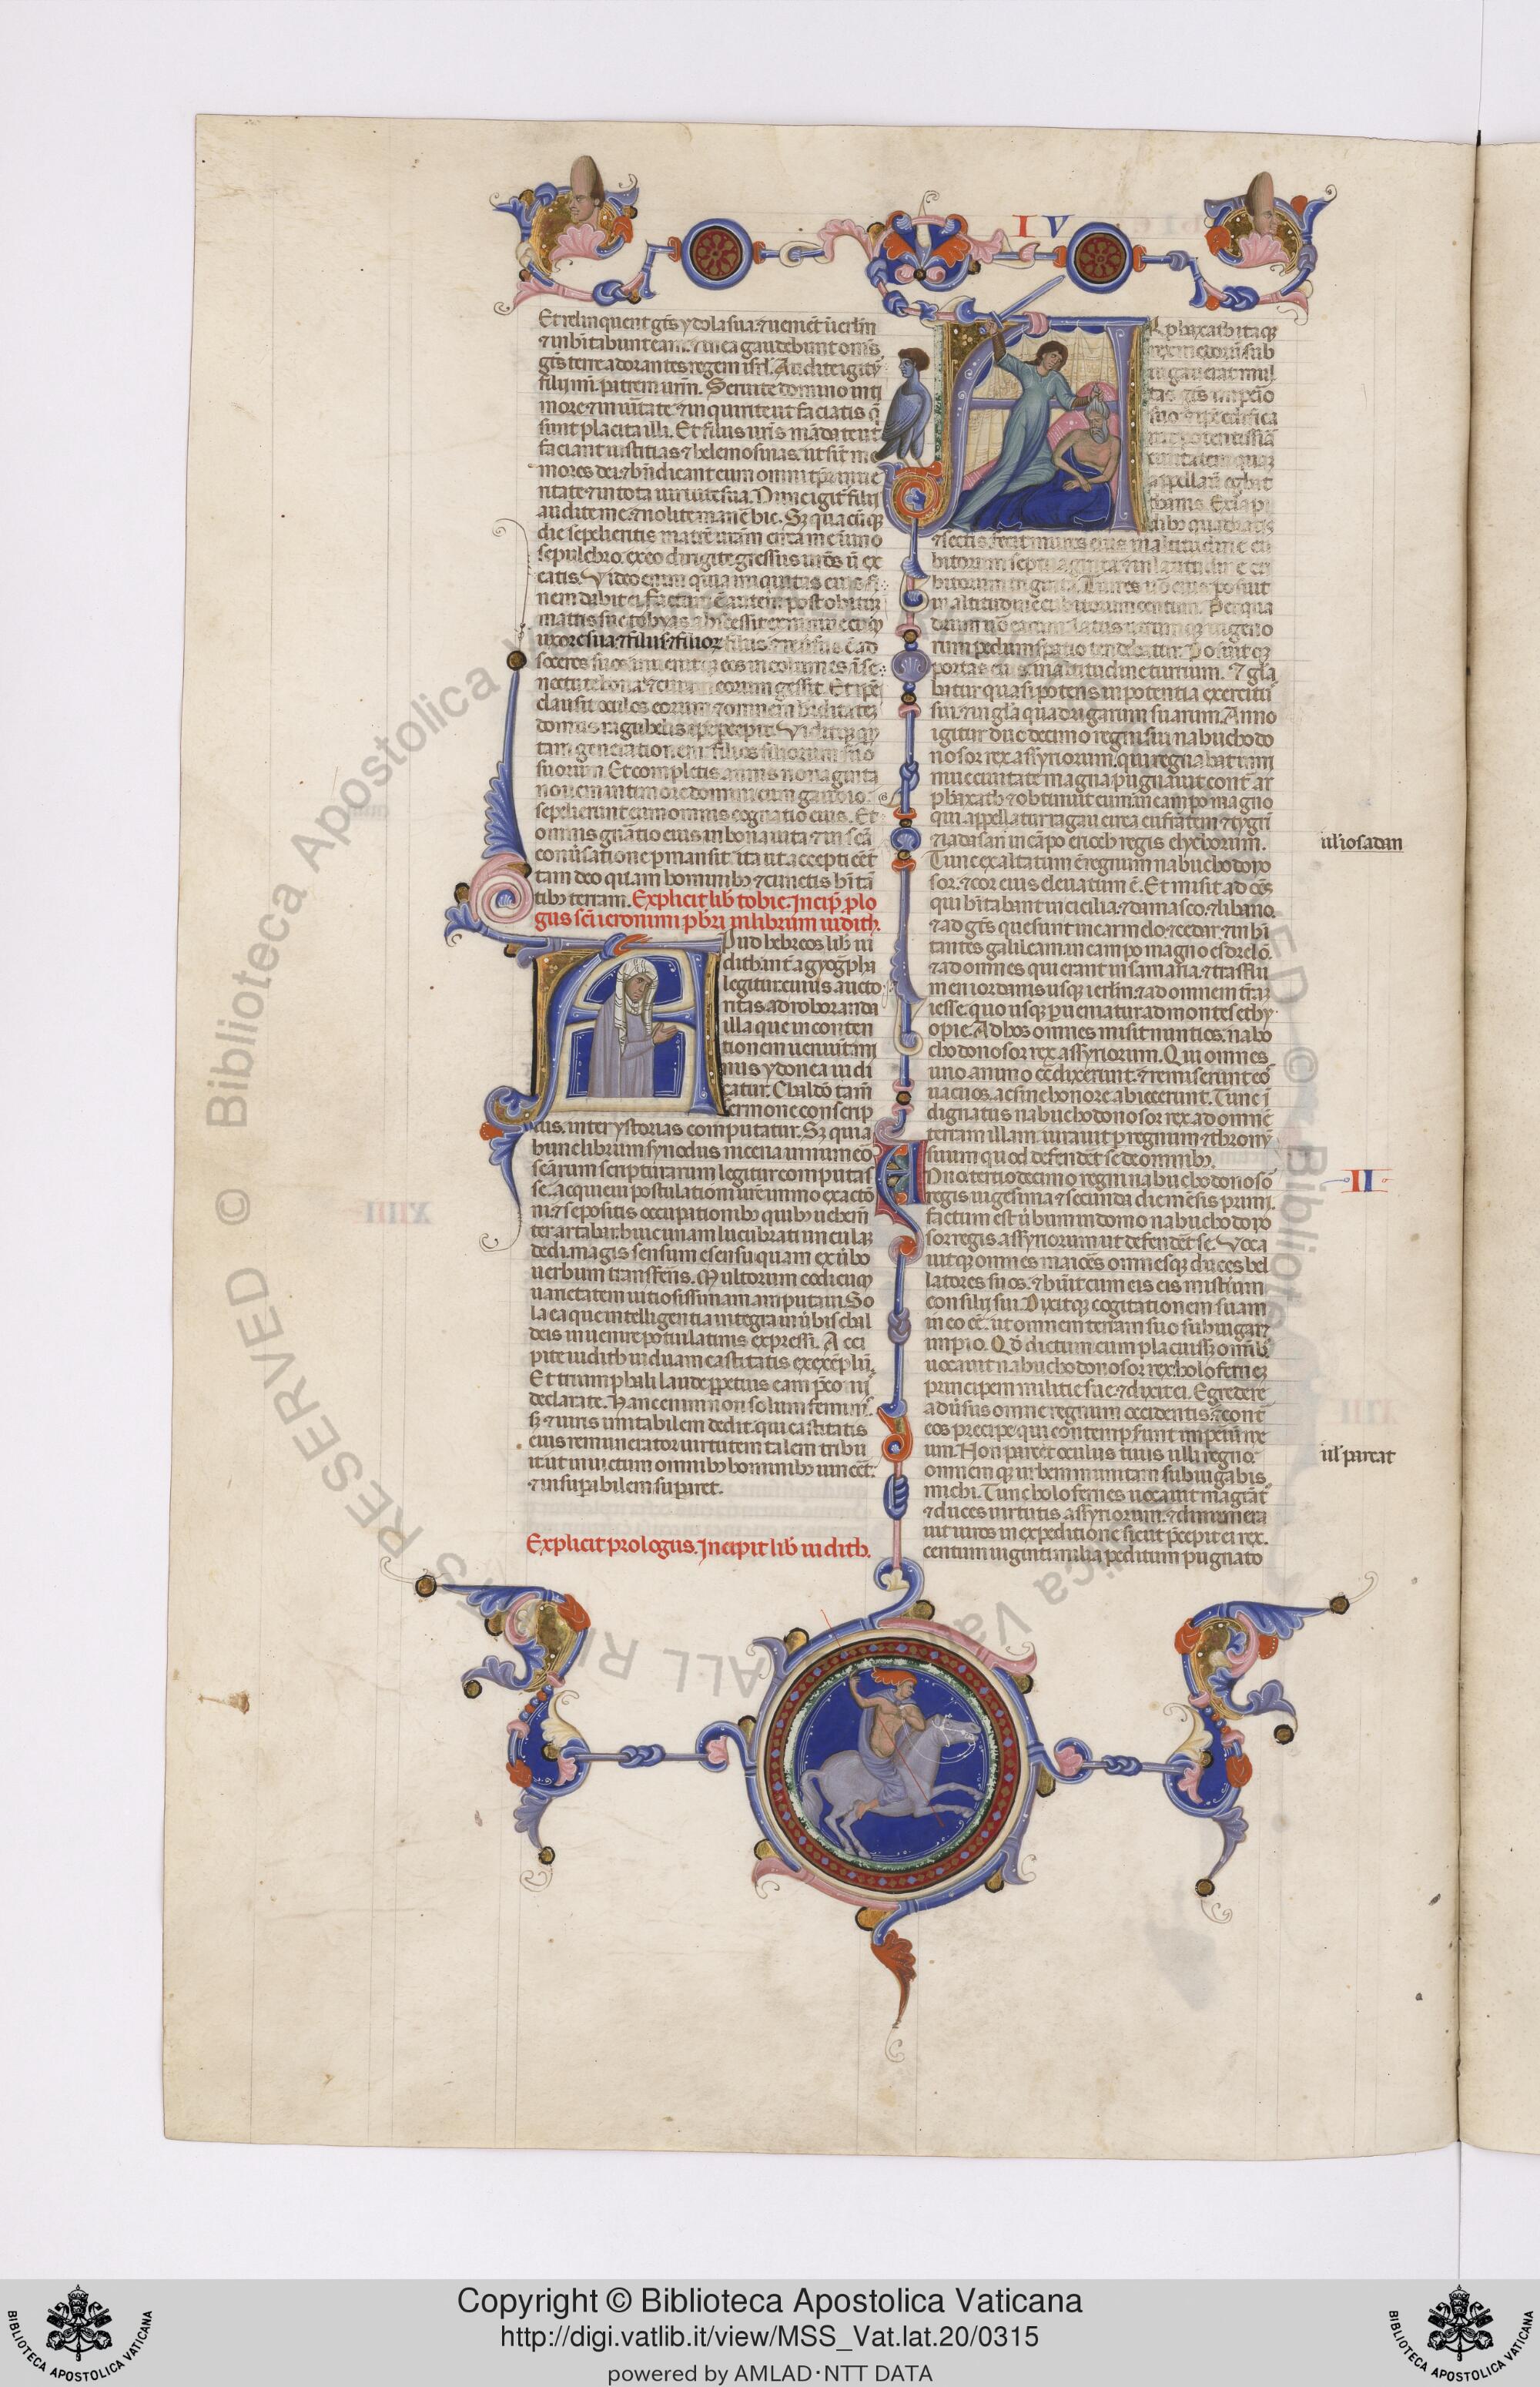 IV
Et relinquent gẽs ydola sua. ⁊ uenient ĩ ierlm̃
⁊ inhĩtabunt eam. ⁊ in ea gaudebunt om̃s
gẽs terre adorantes regem isrl̃. Audite igit᷑
filij mi. patrem ur̃m. Seruite domino in ti
more ⁊ in uĩtate. ⁊ inquirite ut faciatis q̃
sunt placita illi. Et filiis ur̃is mãdate ut
faciant iustitias ⁊ helemosinas. ut sint me
mores dei. ⁊ bñdicant eum omni tp̃r in ue
ritate ⁊ in tota uirtute sua. Nunc igit᷑ filij
audite me. ⁊ nolite manẽ hic. Sꝫ quacũqꝫ
die sepelieritis matrẽ urãm circa me ĩ uno
sepulchro. ex eo dirigite gressus ur̃os ut ex
eatis. Video enim quia iniquitas eius fi
nem dabit ei. Factum ẽ autem post obitum
matris sue tobyas abscessit ex niniue cum
uxore sua ⁊ filiis ⁊ filioꝝ filiis ⁊ reũsus ẽ ad
soceros suos. inuenitqꝫ eos incolumes ĩ se
nectute bona. ⁊ curam eorum gessit. Et ip̃e
clausit oculos eorum. ⁊ omnem hẽditatẽ
domus raguhelis ip̃e p̃cepit. Viditqꝫ qn̄
tam generationem filios filiorum suo
suorum. Et completis annis nonaginta
nouem in timore domini cum gaudio
sepelierunt eum omnis cognatio eius. Et
omnis gñatio eius in bona uita ⁊ in scã
conũsatione ꝑmansit. ita ut accepti eẽt
tam deo quam hominibꝫ ⁊ cunctis hĩtã
tibꝫ terram. Explicit lib̃ tobie. Incip̃ plo
gus scĩ ieronimi p̃bri in librum iudith.
Pud hebreos lib̃ iu
dith int̃ agyog̃pha
legitur. cuius aucto
ritas ad roboranda
illa que in conten
tionem ueniunt mi
nus ydonea iudi
catur. Chaldeo tam̃
sermone conscrip
tus. inter ystorias computatur. Sꝫ quia
hunc librum synodus nicena in numero
scãrum scripturarum legitur computas
se. acquieui postulationi ur̃e immo exactio
ni. ⁊ sepositis occupationibꝫ quibꝫ uehem̃
ter artabar. huic unam lucubratiunculaꝫ
dedi. magis sensum e sensu quam ex ũbo
uerbum transferẽs. Multorum codicum
uarietatem uitiosissimam amputaui. So
la ea que intelligentia integra in ũbis chal
deis inuenire potui latinis expressi. Acci
pite iudith uiduam castitatis exẽplum
Et triumphali laude ꝑpetuis eam p̃coniis
declarate. Hanc enim non solum feminis
sꝫ ⁊ uiris imitabilem dedit. qui castitatis
eius remunerator uirtutem talem tribu
it ut inuictum omnibꝫ hominibꝫ uinceẽt.
⁊ insuꝑabilem suꝑaret.
Explicit prologus. Incipit lib̃ iudith.
Rphaxath itaqꝫ
rex medorum sub
iugauerat mul
tas gẽs imperio
suo. ⁊ ip̃e edifica
uit potentissimã
ciuitatem quaꝫ
appellauit egbat
thanis. Ex lapi
dibꝫ quadratis
⁊ sectis. fecit muros eius in altitudine cu
bitorum septuaginta. ⁊ in latitudine cu
bitorum triginta. Turres uõ eius posuit
in altitudine cubitorum centum. Per qua
drum uõ earum latus utrumqꝫ uigeno
rum pedum spatio tendebatur. Posuitqꝫ
portas eius in altitudine turrium. ⁊ gl̃a
batur quasi potens in potentia exercitus
sui. ⁊ in gl̃a quadrigarum suarum. Anno
igitur duodecimo regni sui nabuchodo
nosor rex assyriorum. qui regnabat in ni
niue ciuitate magna. pugnauit contra ar
phaxath ⁊ obtinuit eum in campo magno
qui appellatur ragau circa eufratem ⁊ tygrĩ
⁊ iadasan in cãpo erioch regis elychorum.
Tunc exaltatum ẽ regnum nabuchodono
sor. ⁊ cor eius eleuatum ẽ. Et misit ad oẽs
qui hĩtabant in cicilia ⁊ damasco ⁊ libano.
⁊ ad gẽs que sunt in carmelo ⁊ cedar. ⁊ inhĩ
tantes galileam. in campo magno esdrelõ.
⁊ ad omnes qui erant in samaria ⁊ trans flu
men iordanis usqꝫ ierlm̃. ⁊ ad omnem tr̃aꝫ
iesse. quo usqꝫ ꝑueniatur ad montes ethy
opie. Ad hos omnes misit nuntios nabu
chodonosor rex assyriorum. Qui omnes
uno animo cõtdixerunt. ⁊ remiserunt eos
uacuos. ac sine honore abiecerunt. Tunc ĩ
dignatus nabuchodonosor rex. ad omnẽ
terram illam. iurauit ꝑ regnum ⁊ thronũ
suum quod defendẽt se de omnibꝫ.
Anno tertiodecimo regni nabuchodonoso
regis uigesima ⁊ secunda die mẽsis primi.
factum est ũbum in domo nabuchodono
sor regis assyriorum ut defenderet se. Voca
uitqꝫ omnes maiores omnesqꝫ duces bel
latores suos. ⁊ habuit cum eis misterium
consilij sui. Dixitqꝫ cogitationem suam
in eo eẽ. ut omnem terram suo subiugaret
imperio. Qd̃ dictum cum placuisset omĩbꝫ
uocauit nabuchodonosor rex holofernem
principem militie sue. ⁊ dixit ei. Egredere
aduersus omne regnum occidentis. ⁊ contra
eos precipue qui contempserunt imperium me
um. Non parcet oculus tuus ulli regno.
omnemqꝫ urbem munitam subiugabis
michi. Tunc holofernes uocauit magr̃at᷑
⁊ duces uirtutis assyriorum. ⁊ dinumera
uit uiros in expeditione sicut p̃cepit ei rex.
centum uiginti milia peditum pugnato
ul̃ iosadan
II
ul̃ pareat
© Biblioteca Apostolica Vaticana ALL RIGHTS RESERVED
Copyright © Biblioteca Apostolica Vaticana
http://digi.vatlib.it/view/MSS_Vat.lat.20/0315
powered by AMLAD·NTT DATA
BIBLIOTECA APOSTOLICA VATICANA
BIBLIOTECA APOSTOLICA VATICANA